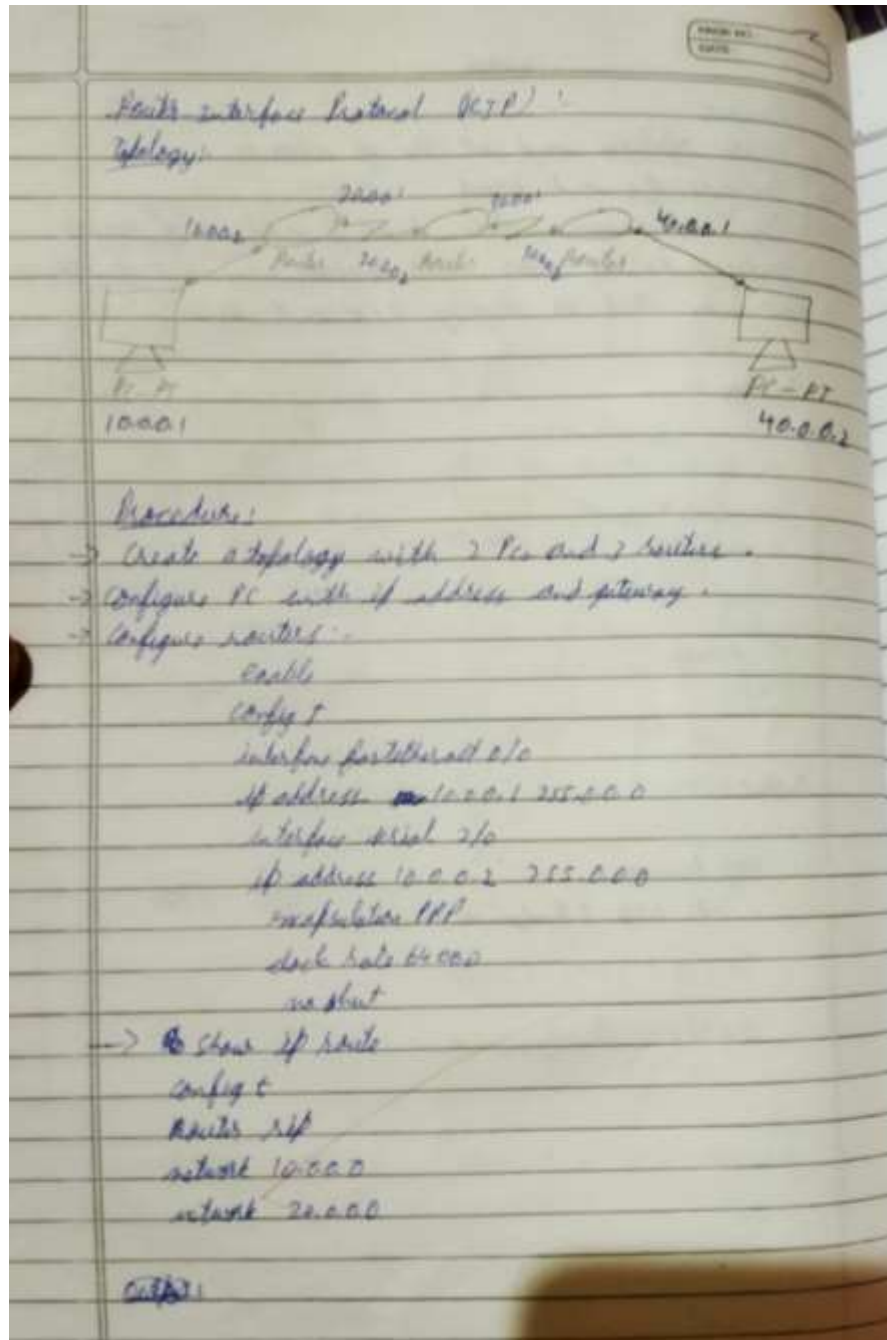 PAGE NO.
DATE
Router Interface Protocol (RIP) :
Topology:
20.0.0.1 30.0.0.1
10.0.0.2 40.0.0.1
Router 20.0.0.2 Router Router
PC-PT PC-PT
10.0.0.1 40.0.0.2
Procedure:
→ Create a topology with 2 PCs and 3 routers.
→ Configure PC with ip address and gateway.
→ Configure routers:
enable
config t
interface fastethernet 0/0
ip address 10.0.0.1 255.0.0.0
interface serial 2/0
ip address 10.0.0.2 255.0.0.0
encapsulation PPP
clock rate 64000
no shut
→ Show ip route
config t
Router rip
network 10.0.0.0
network 20.0.0.0
Output: